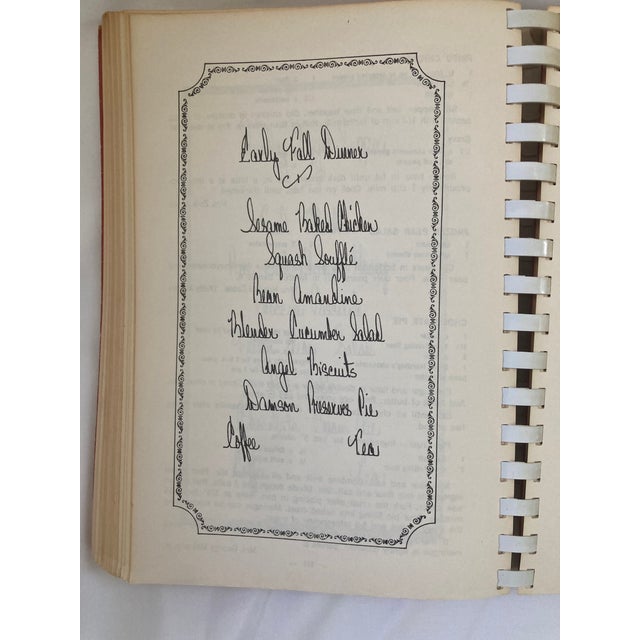 Early Fall Dinner
Sesame Baked Chicken
Squash Soufflé
Bean Amandine
Blender Cucumber Salad
Angel Biscuits
Damson Preserves Pie
Coffee Tea